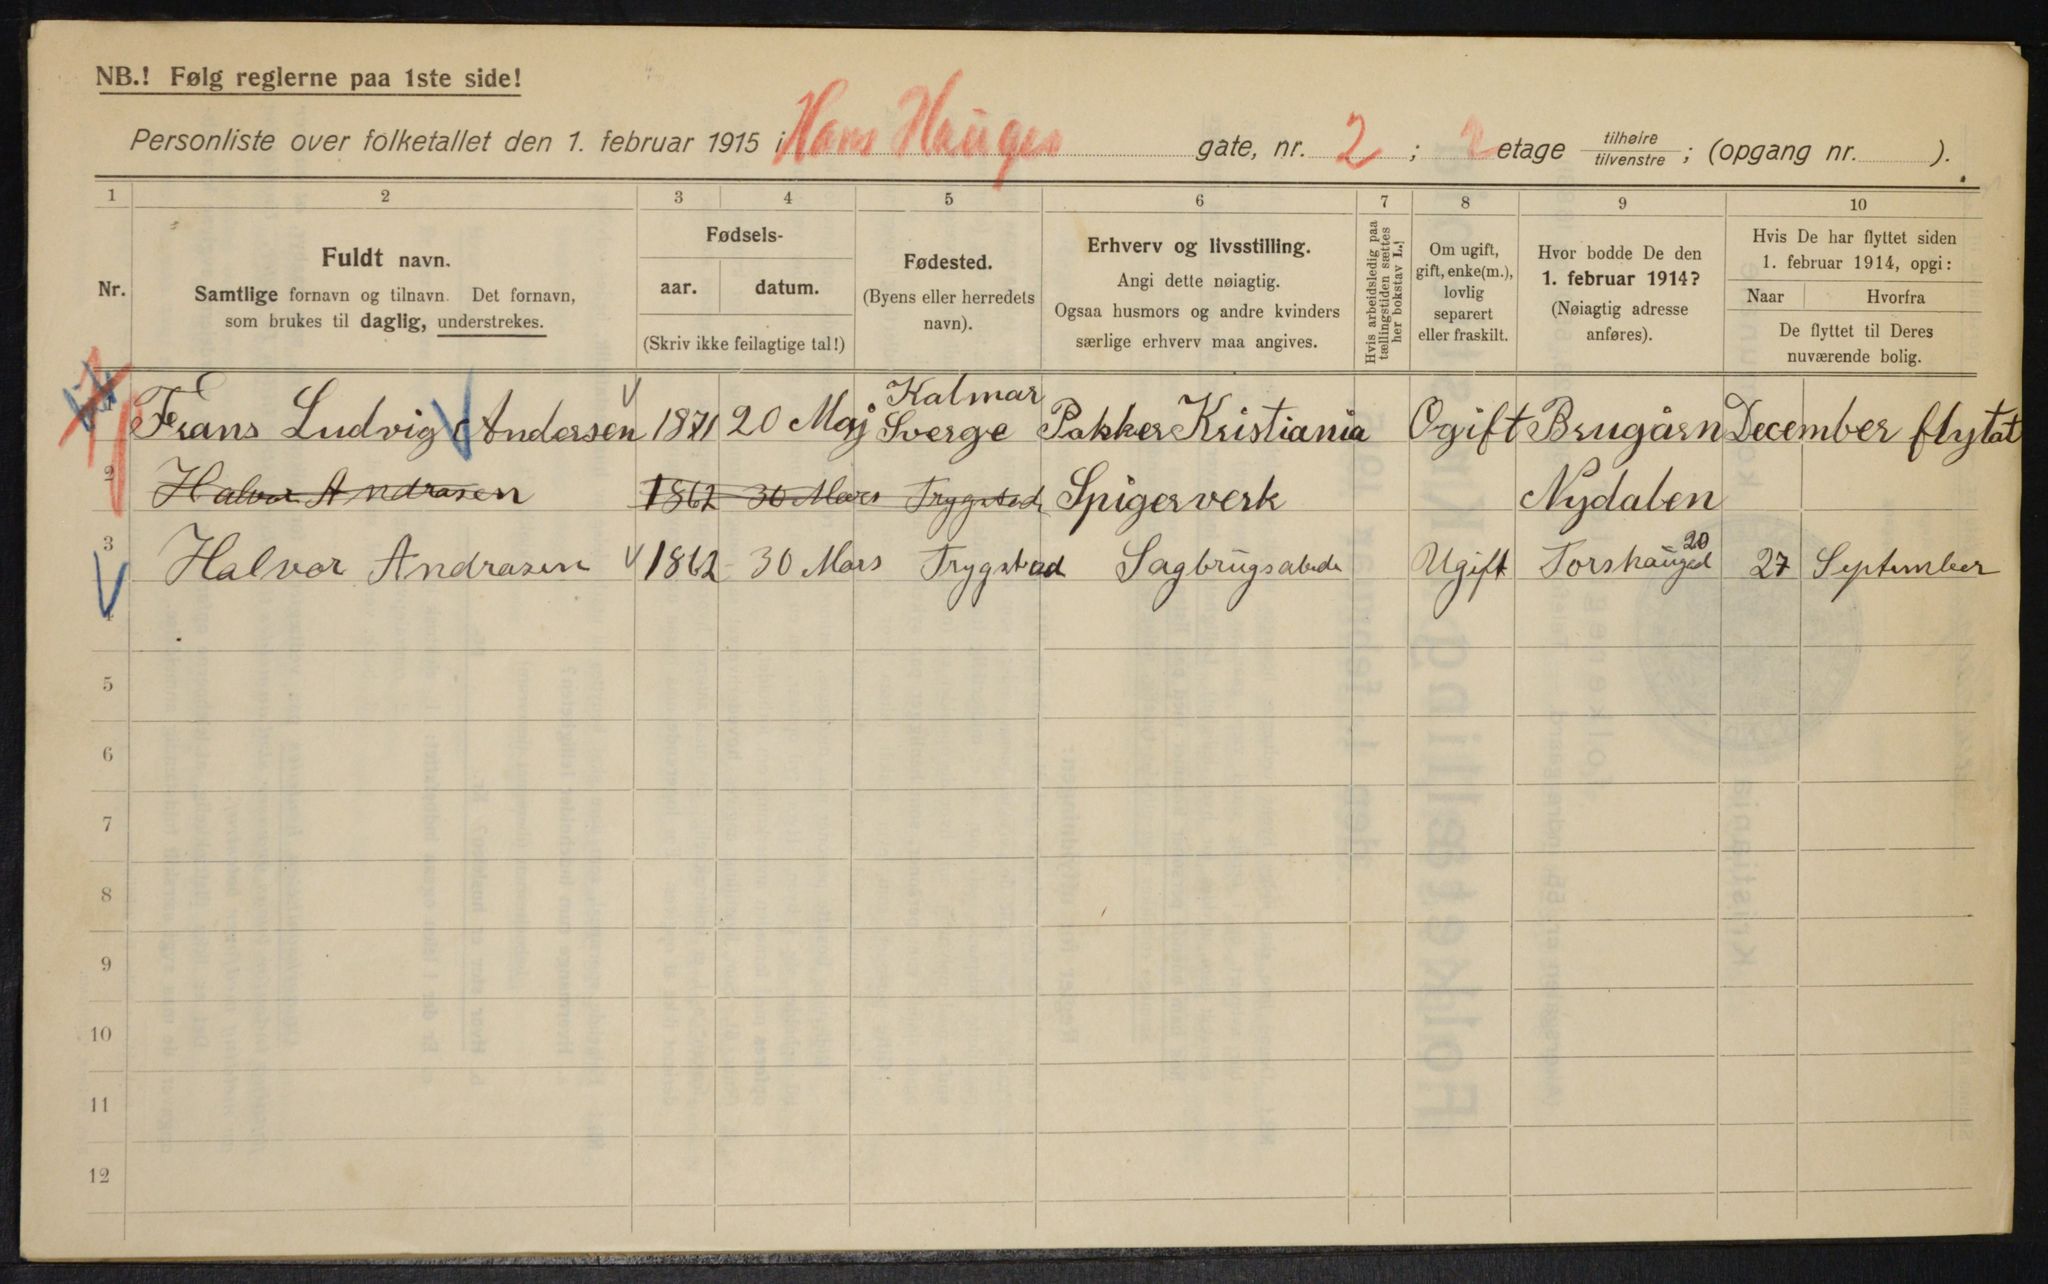 NB.! Følg reglerne paa 1ste side!
Personliste over folketallet den 1. februar 1915 i Hans Hauges gate, nr. 2 ; 2 etage tilhøire / tilvenstre ; (opgang nr. ).
1 2 3 4 5 6 7 8 9 10
Nr.
Fuldt navn.
Samtlige fornavn og tilnavn. Det fornavn,
som brukes til daglig, understrekes.
Fødsels-
aar. datum.
(Skriv ikke feilagtige tal!)
Fødested.
(Byens eller herredets
navn).
Erhverv og livsstilling.
Angi dette nøiagtig.
Ogsaa husmors og andre kvinders
særlige erhverv maa angives.
Hvis arbeidsledig paa
tællingstiden sættes
her bokstav L.
Om ugift,
gift, enke(m.),
lovlig
separert
eller fraskilt.
Hvor bodde De den
1. februar 1914?
(Nøiagtig adresse
anføres).
Hvis De har flyttet siden
1. februar 1914, opgi:
Naar Hvorfra
De flyttet til Deres
nuværende bolig.
Kalmar
1 Frans Ludvig Andersen 1871 20 Maj Sverge Pakker Kristiania Ogift Brugårn December flytat
2 Halvor Andrasen 1862 30 Mars Trygstad Spigerverk Nydalen
20
3 Halvor Andrasen 1862 30 Mars Trygstad Sagbrugsabede Ugift Torshauged 27 September
4
5
6
7
8
9
10
11
12